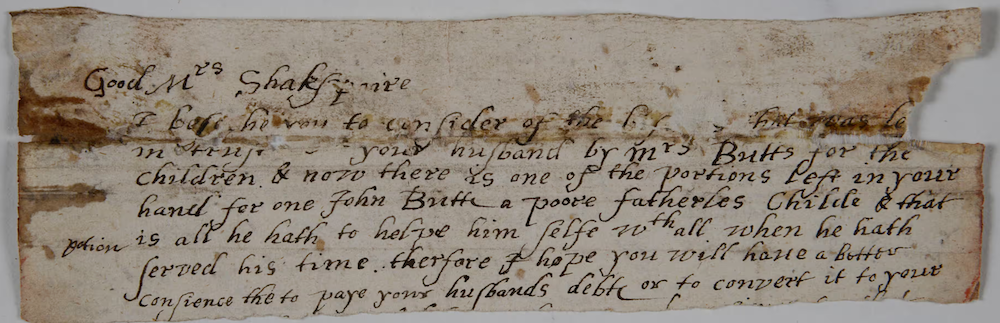 Good Mrs Shakspaire
I bese he you to consider of the that was le
in trust your husband by mrs Butts for the
children & now there is one of the portions left in your
hand for one John Butte a poore fatherles Childe & that
potion is all he hath to helpe him selfe wth all when he hath
served his time therfore I hope you will have a better
Consience the to paye your husbands debte or to convert it to your